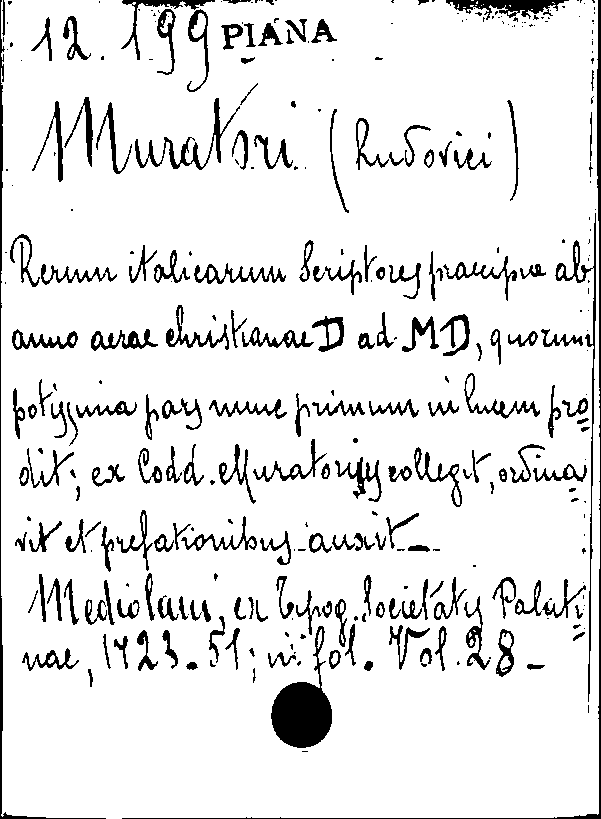 12. 199 PIANA
Muratori (Ludovici)
Rerum italicarum Scriptores praecipue ab
anno aerae christianae D ad MD, quorum
potissima pars nunc primum in lucem pro=
dit; ex Codd. Muratorius collegit, ordina=
vit et prefationibus auxit_
Mediolani, ex Typog. Societatis Palati=
nae, 1723-51; in fol. Vol. 28_